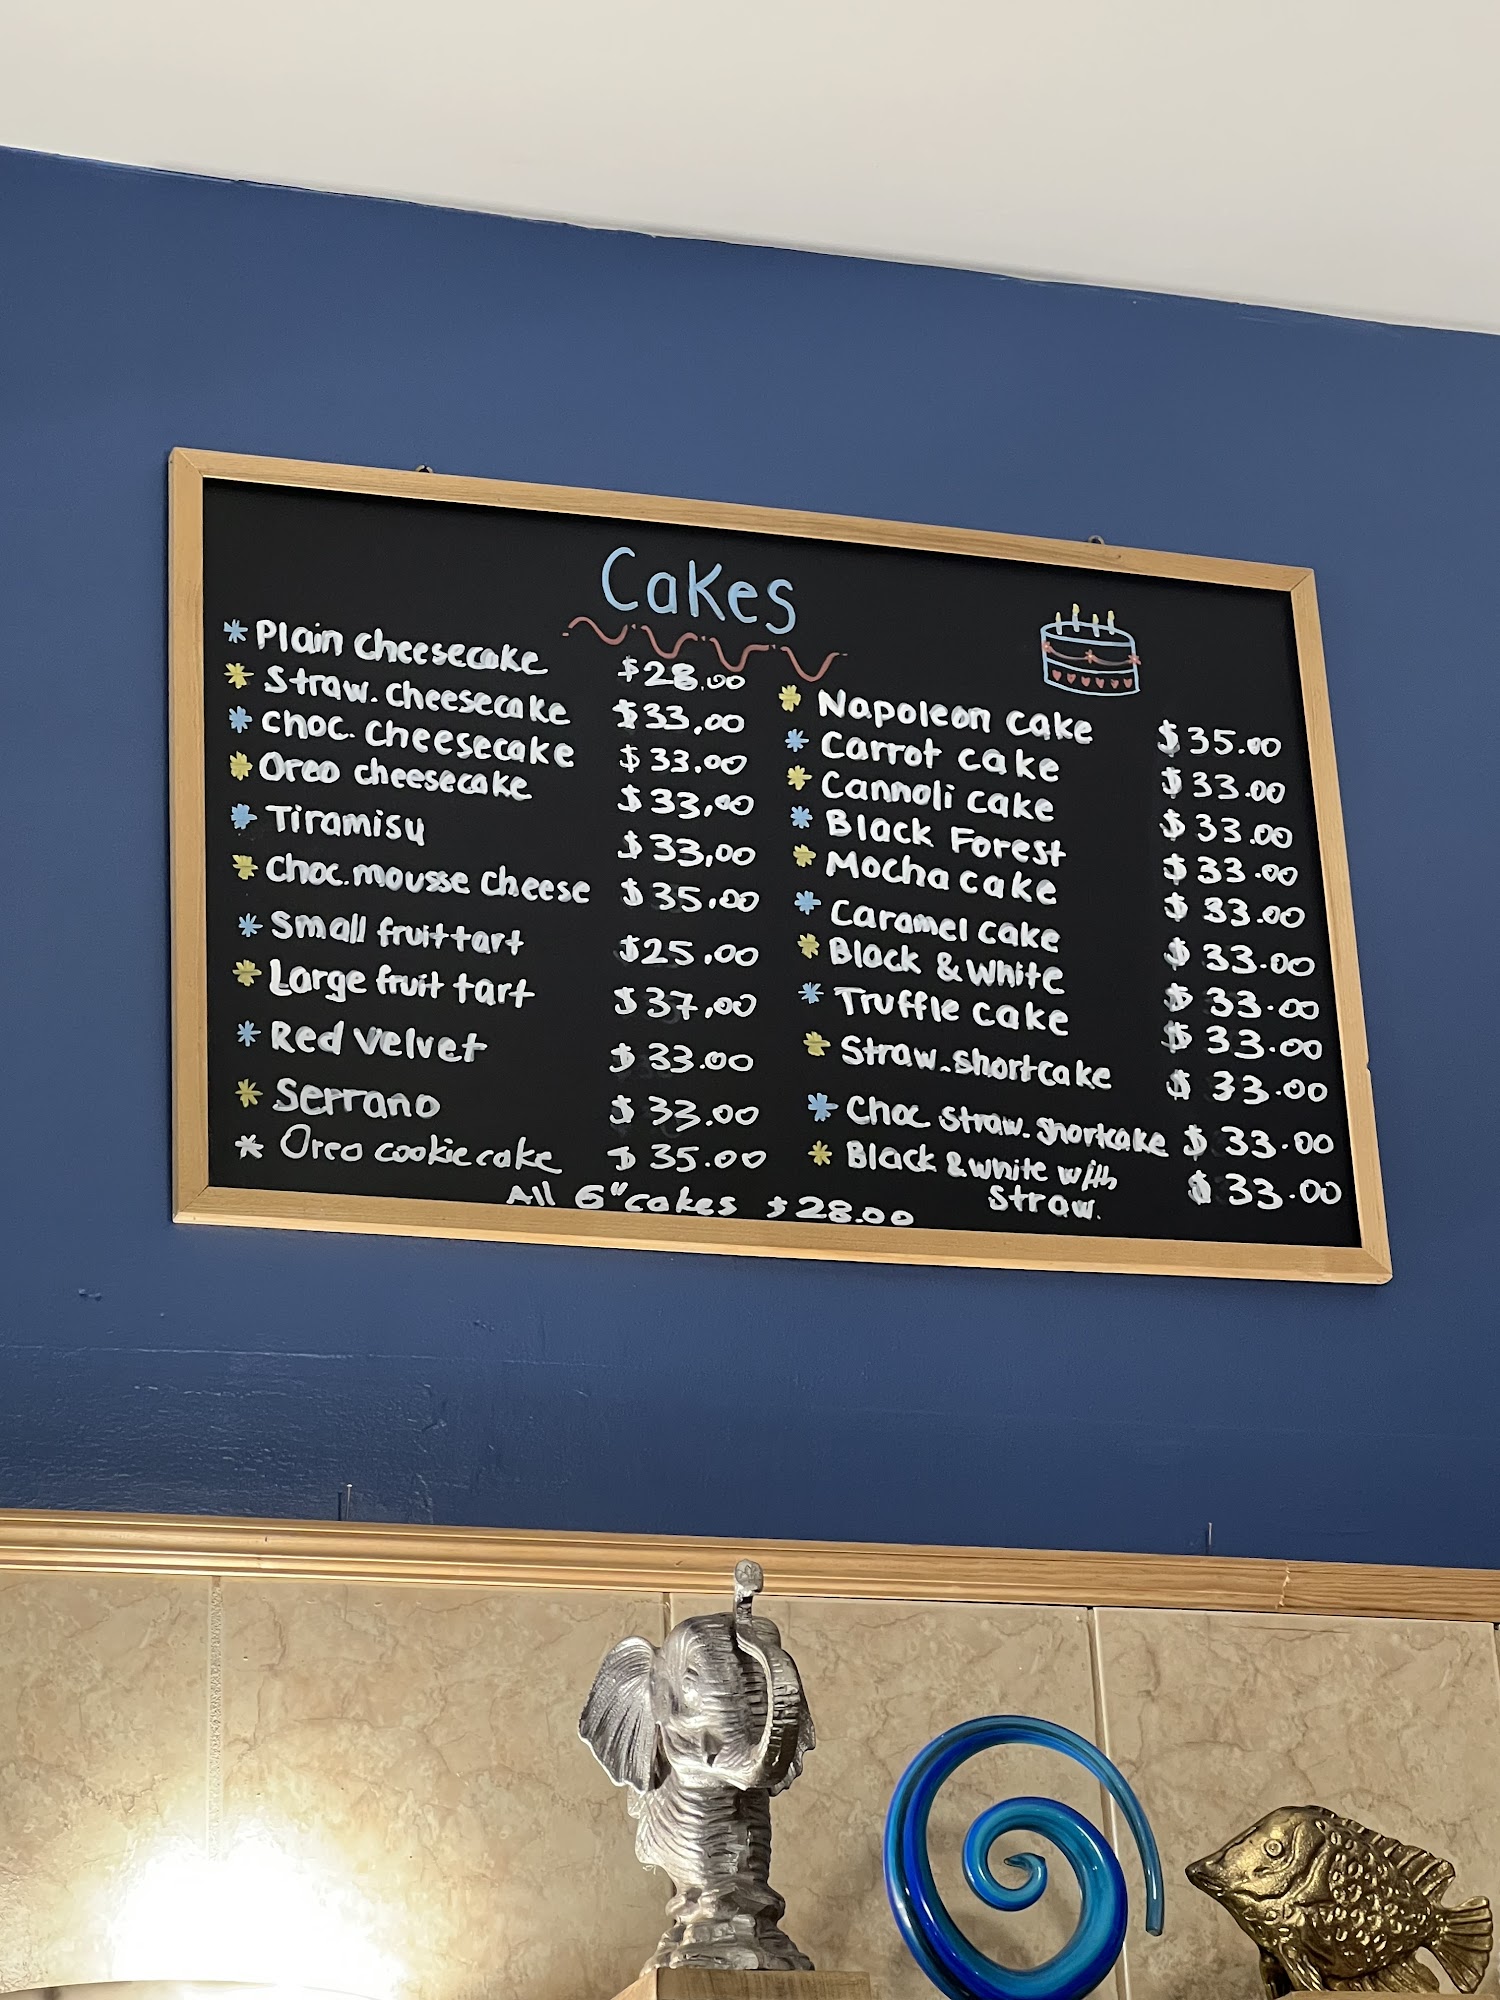 Cakes
* Plain cheesecake $28.00
* Straw. cheesecake $33.00
* choc. cheesecake $33.00
* Oreo cheesecake $33.00
* Tiramisu $33.00
* Choc. mousse cheese $35.00
* Small fruit tart $25.00
* Large fruit tart $37.00
* Red Velvet $33.00
* Serrano $33.00
* Oreo cookie cake $35.00
* Napoleon cake $35.00
* Carrot cake $33.00
* Cannoli cake $33.00
* Black Forest $33.00
* Mocha cake $33.00
* Caramel cake $33.00
* Black & White $33.00
* Truffle cake $33.00
* Straw. shortcake $33.00
* Choc straw. shortcake $33.00
* Black & white with $33.00
Straw.
All 6" cakes $28.00